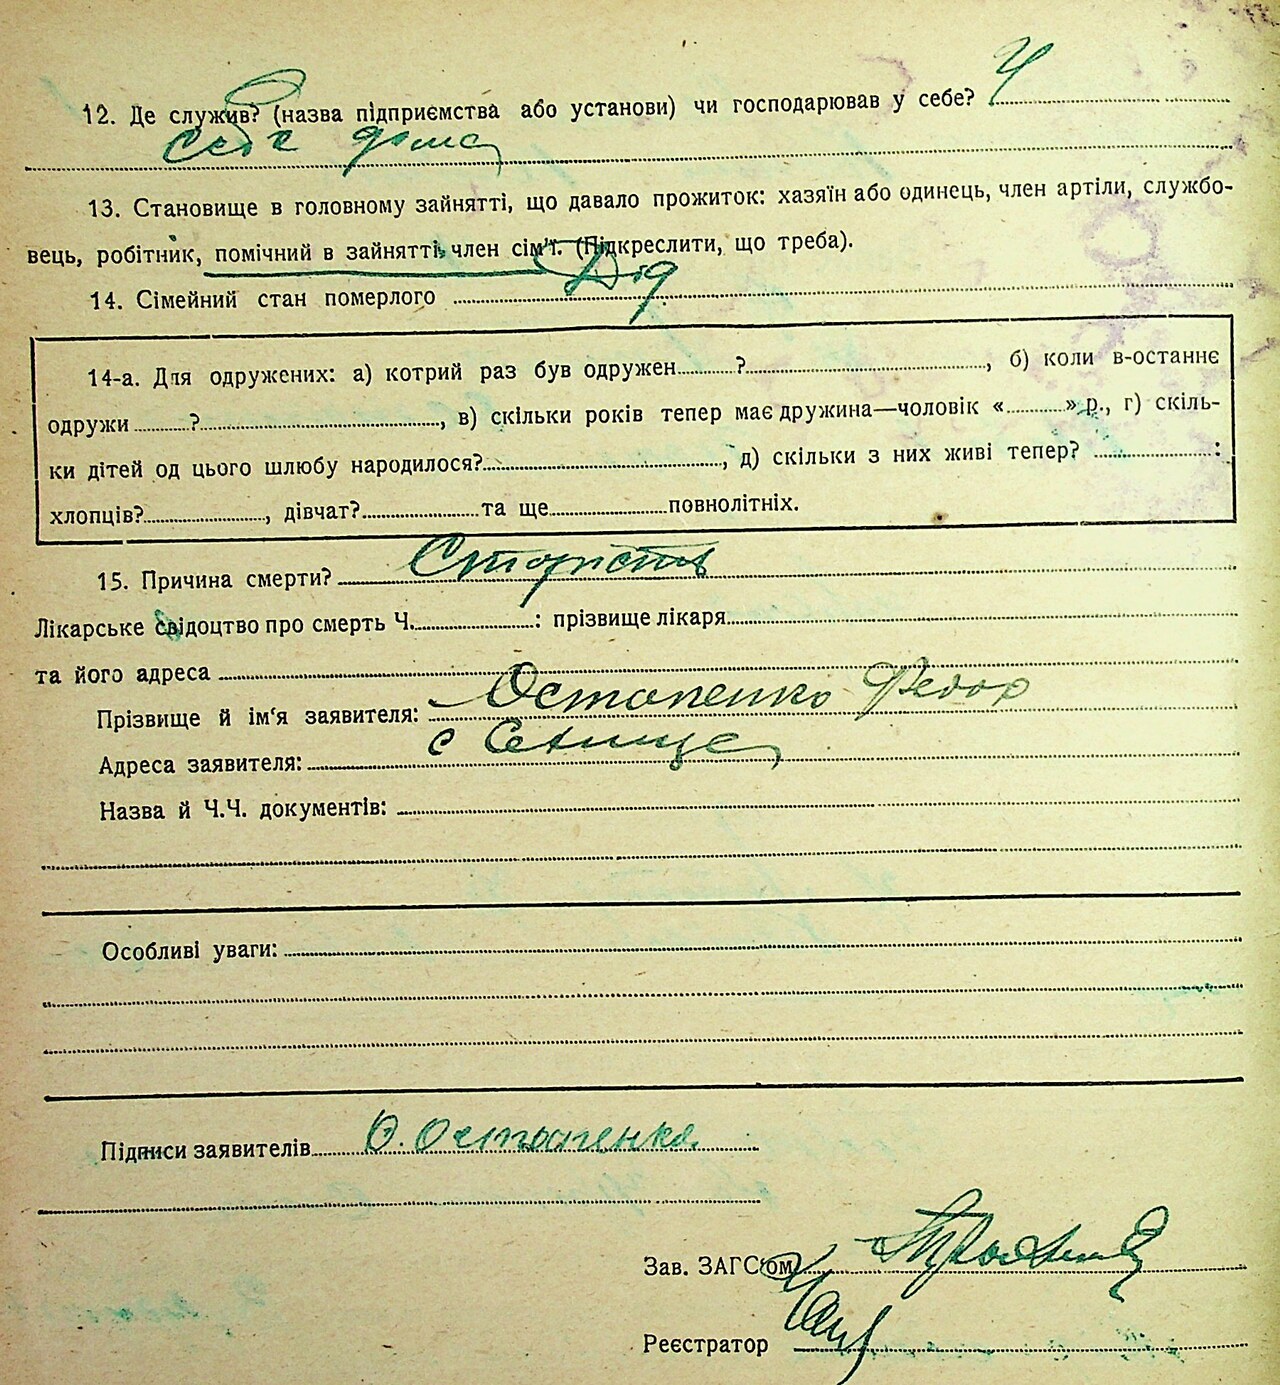 12. Де служив? (назва підприємства або установи) чи господарював у себе? У
себе дома
13. Становище в головному зайнятті, що давало прожиток: хазяїн або одинець, член артіли, службо-
вець, робітник, помічний в зайнятті член сім'ї. (Підкреслити, що треба).
14. Сімейний стан померлого Дід
14-а. Для одружених: а) котрий раз був одружен ? , б) коли в-останнє
одружи ? , в) скільки років тепер має дружина—чоловік « » р., г) скіль-
ки дітей од цього шлюбу народилося? , д) скільки з них живі тепер? :
хлопців? , дівчат? та ще повнолітніх.
15. Причина смерти? Старість
Лікарське свідоцтво про смерть Ч. : прізвище лікаря
та його адреса
Прізвище й ім'я заявителя: Остапенко Федор
Адреса заявителя: с
Назва й Ч.Ч. документів:
Особливі уваги:
Підписи заявителів Ф. Остапенко
Зав. ЗАГС'ом
Реєстратор